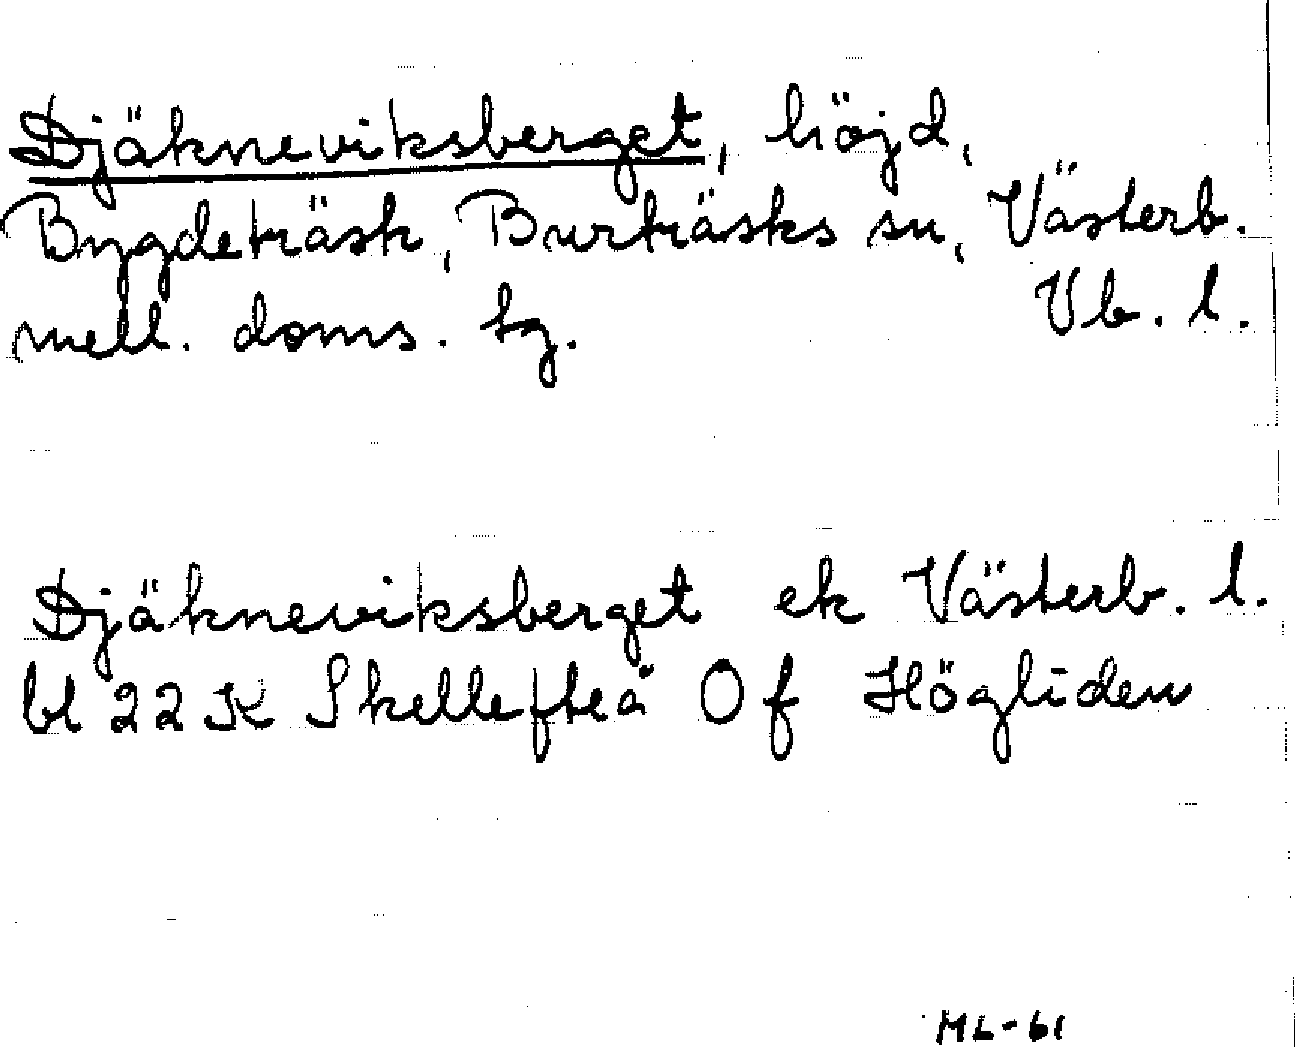 Djäkneviksberget, höjd,
Bygdeträsk, Burträsks sn, Västerb.
mell. doms. tg. Vb. l.
Djäkneviksberget ek Västerb. l.
bl 22 K Skellefteå 0 f Högliden
ML-61